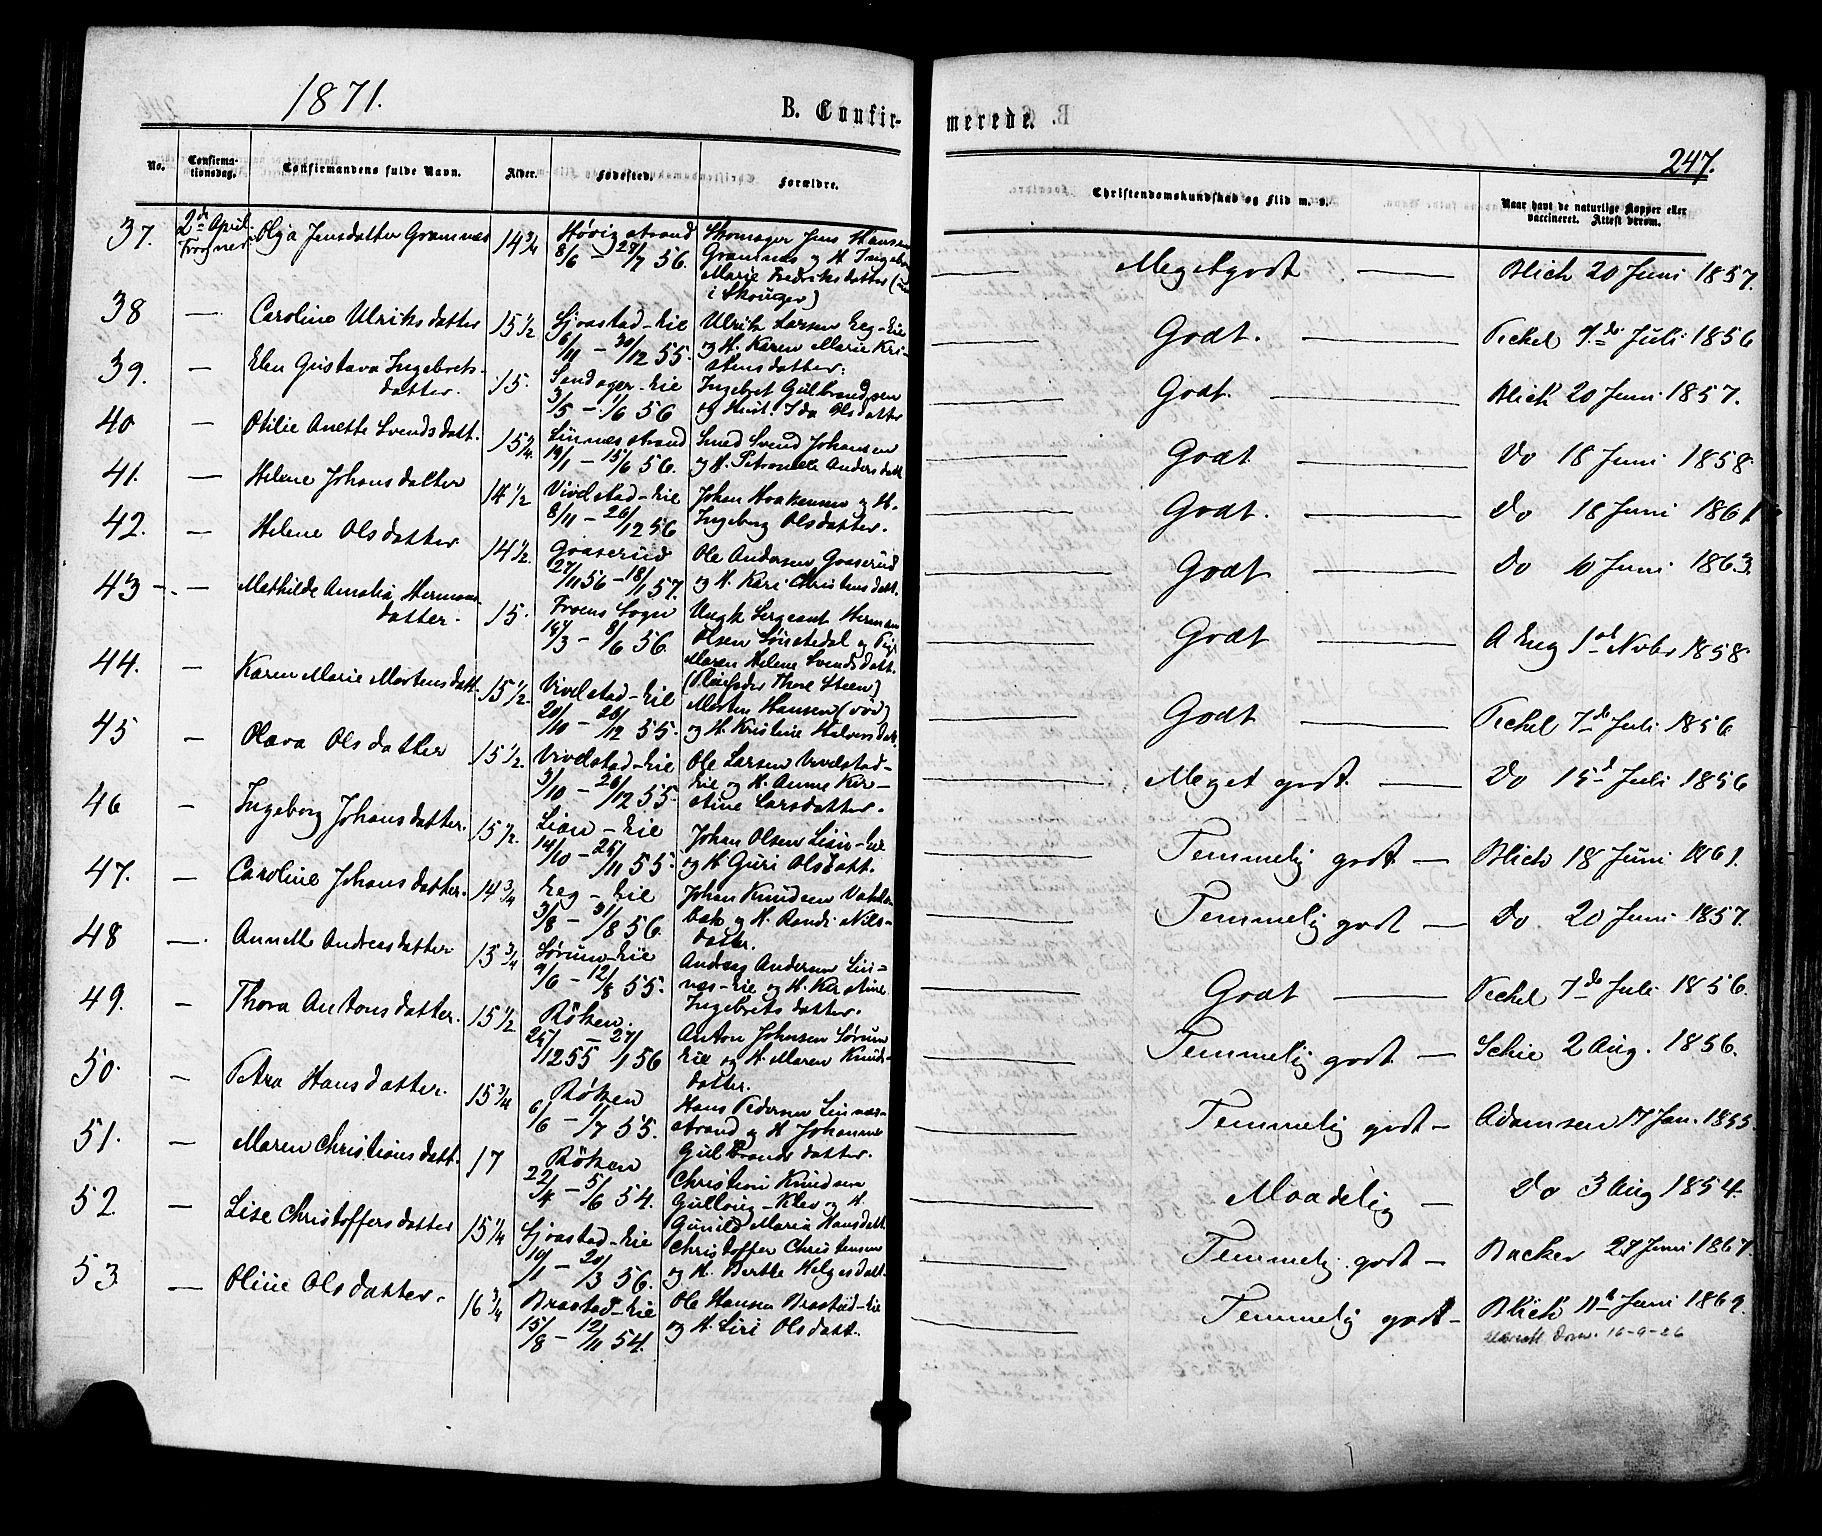 1871.
B. Confir-
merede.
247.
No.
Confirma-
tionsdag.
Confirmandens fulde Navn.
Alder.
Fødested.
Forældre.
Christendomskundskab og Flid m. v.
Naar havt de naturlige Kopper eller
vaccineret. Attest derom.
37. 2de April Frogner Olga Jensdatter Gramnæs 14 3/4 Høvigstrand 8/6 – 27/7 56. Skomager Jens Hansen
Gramnæs og H. Ingeborg
Marie Fredriksdatter
i Skouger) — Megetgodt — Blich 20 Juni 1857.
38 — Caroline Ulriksdatter 15 1/2 Sjøastad-Eie 6/11 – 30/12 55. Ulrik Larsen Eeg-Eie
og H. Karen Marie Kri-
stensdatter. — Godt. — Pechel 7de Juli 1856
39. — Elen Gustava Ingebrets-
datter. 15. Sandager-Eie 3/5 – 1/6 56 Ingebret Gulbrandsen
og Hust. Ida Olsdatter — Godt. — Blich 20 Juni 1857.
40 — Otilie Anette Svendsdatt. 15 1/4 Linnæsstrand 19/1 – 15/6 56. Smed Svend Johansen
og H. Petronelle Andersdatt — Godt — Do 18 Juni 1858.
41. — Helene Johansdatter 14 1/2 Vivelstad-Eie 8/11 – 26/12 56 Johan Haakensen og H.
Ingeborg Olsdatter. — Godt. — Do 18 Juni 1861
42. — Helene Olsdatter 14 1/2. Gaaserud 27/11 56 – 18/1 57. Ole Andersen Gaaserud
og H. Kari Christensdatt. — Godt — Do 10 Juni 1863.
43 — Mathilde Amalia Hermans-
datter. 15. Froens Sogn 14/3 – 8/6 56. Ungk. Sergeant Herman
Olsen Sønstedal og Pige
Maren Helene Svendsdatt.
(Pleiefader Thore Steen) — Godt — A Eng 1ste Novbr 1858
44. — Karen Marie Mortensdatt 15 1/2. Vivelstad-Eie 20/10 – 26/12 55. Morten Hansen (død)
og H. Kristine Halvorsdatt — Godt — Pechel 7de Juli 1856
45 — Olava Olsdatter 15 1/2. Vivelstad-Eie 3/10 – 26/12 55. Ole Larsen Vivelstad-
Eie og H. Anne Kir-
stine Larsdatter. — Meget godt. — Do 15d Juli 1856
46 — Ingeborg Johansdatter. 15 1/2. Lian-Eie 14/10 – 25/11 55. Johan Olsen Lian-Eie
og H. Guri Olsdatt. — Temmelig godt — Blich 18 Juni 1861.
47. — Caroline Johansdatter. 14 3/4 Eeg-Eie 3/8 – 31/8 56. Johan Knudsen
bak og H. Randi Nils-
datter. — Temmelig godt — Do 20 Juni 1857.
48 — Annette Andreasdatter 15 3/4 Sørum-Eie 9/6 – 12/8 55. Andreas Andersen Lin-
næs-Eie og H. Kirstine
Ingebretsdatter. — Godt — Pechel 7de Juli 1856.
49. — Thora Antonsdatter. 15 1/2 Røken. 25/12 55 – 27/1 56 Anton Johansen Sørum
Eie og H. Maren Knuds-
datter. — Temmelig godt — Schie 2 Aug. 1856.
50. — Petra Hansdatter. 15 3/4 Røken 6/6 – 1/7 55. Hans Pedersen Linnæs-
strand og H. Johanne
Gulbrandsdatter. — Temmelig godt — Adamsen 17 Jan. 1855.
51. — Maren Christiansdatt. 17 Røken 22/4 – 5/6 54. Christian Knudsen
Gullaug-Klev og H.
Gunild Maria Hansdatt. — Maadelig — Do 3 Aug 1854.
52. — Lise Christoffersdatter 15 1/4 Sjøastad-Eie 10/1 – 20/3 56. Christoffer Christensen
og H. Berthe Helgesdatt. — Temmelig godt — Backer 27 Juni 1867.
53 — Oline Olsdatter. 16 3/4 Brastad-Eie 15/8 – 12/11 54. Ole Hansen Brastad-Eie
og H. Siri Olsdatt. — Temmelig godt — Blich 11te Juni 1869.
16-9-26